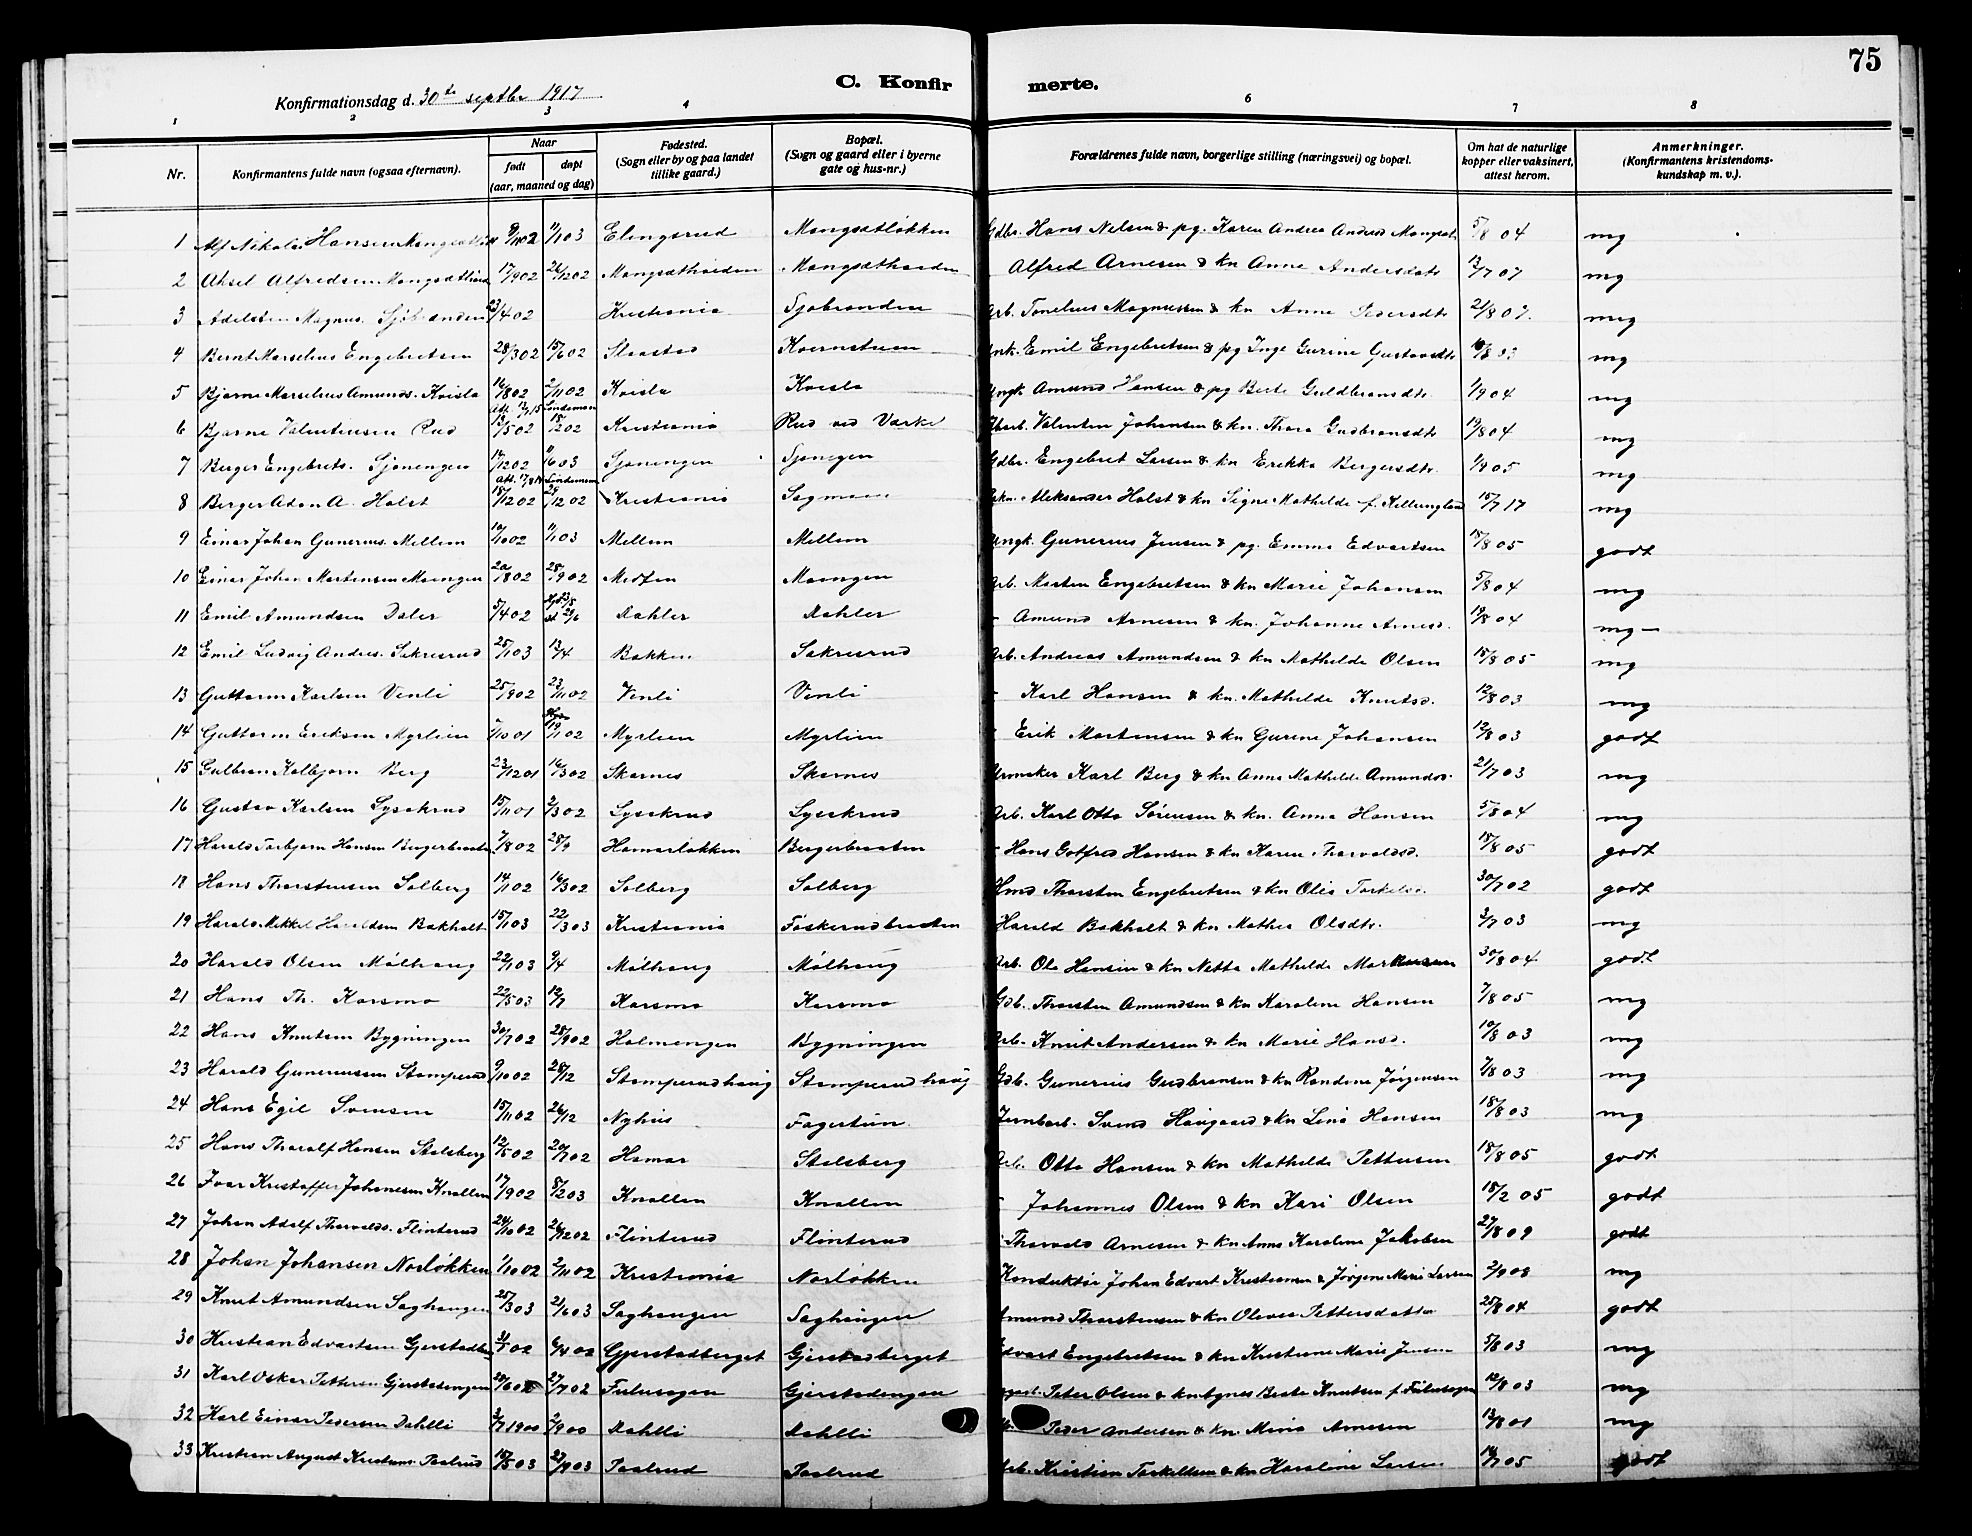 75
C. Konfir merte.
Konfirmationsdag d. 30te septbr 1917
1 2 3 4 6 7 8
Nr. Konfirmantens fulde navn (ogsaa efternavn). Naar født døpt (aar, maaned og dag) Fødested. (Sogn eller by og paa landet tillike gaard.) Bopæl. (Sogn og gaard eller i byerne gate og hus-nr.) Forældrenes fulde navn, borgerlige stilling (næringsvei) og bopæl. Om hat de naturlige kopper eller vaksinert, attest herom. Anmerkninger. (Konfirmantens kristendoms-kundskap m. v.).
1 Alf Nikolai Hansen 11/1 03 Elingsrud Mangsetløkken Gdbr. Hans Nelsen & pg. Karen Andrea 5/8 04 mg
2 Aksel Alfredsen 17/9 02 26/12 02 Alfred Arnesen & kn Anne Andersdatr 13/7 07 mg
3 Adelsten Magnus Sjøbranden 23/4 02 Kristiania Sjøbranden Arb. Tonelius Magnussen & kn Anne Pedersdtr 21/8 07. mg
4 Bernt Marselius Engebretsen 28/3 02 15/6 02 Slaastad Kvernstuen Emil Engebretsen & pg Inge Gurine Gustavsdtr 10/8 03 mg
5 Bjarne Marselius Amunds. Kvisla 16/8 02 2/11 02 Kvisla Kvisla Ungk. Amund Hansen & pg Berte Guldbransdtr. 1/9 04 mg
6 Bjarne Valentinsen Rud 13/5 02 Kristiania Rud ved Varke Valentin Johansen & kn. Thora Gudbransdtr 19/8 04 mg
7 Berger Engebrets. Sjønengen 14/12 02 1/6 03 Sjønengen Sjønegen Gdbr. Engebret Larsen & kn Erikka Bergersdtr. 1/9 05 mg
8 Berger Adon A. Holst 18/12 02 Kristiania Sagmoen Aleksander Holst & kn Signe Mathilde f. 15/7 17 mg
9 Einar Johan Gunerius Mellem 10/10 02 1/1 03 Mellem Mellem Ungk. Gunerius Jensen & pg. Emma Edvartsen 15/8 05 godt
10 Einar Johan Martensen Moengen 20/8 02 28/9 02 Moengen Arb. Marten Engebretsen & kn Marie Johansen 5/8 04 mg
11 Emil Amundsen Daler 5/4 02 Dahler Dahler - Amund Arnesen & kn. Johanne Arnesd. 19/8 04 mg -
12 Emil Ludvig Andrs. Sakresrud 25/1 03 13/4 Bakken Sakresrud Arb. Andreas Amundsen & kn Mathilde Olsen 15/8 05 mg
13 Guttorm Karlsen Venli 25/9 02 23/11 02 Venli Venli - Karl Hansen & kn. Mathilde Knutsd. 12/8 03 mg
14 Guttorm Eriksen Myrlien 7/10 01 19/1 02 Myrlien Myrlien - Erik Martensen & kn Gurine Johansen 12/8 03 godt
15 Gulbran Kolbjørn Berg 23/12 01 16/3 02 Skarnes Skarnes Urmaker Karl Berg & kn Anna Mathilde Amundsd. 21/7 03 mg
16 Gustav Karlsen Lysakrud 15/11 01 2/3 02 Lysakrud Lysakrud Arb. Karl Otto Sørensen & kn. Anna Hansen 5/8 04 mg
17 Harald Torbjørn Hansen Bergerbraaten 7/8 02 28/9 Hamarløkken Bergerbraaten - Hans Gotfred Hansen & kn Karen Thorvaldsd. 18/8 05 godt
18 Hans Thorstensen Solberg 14/1 02 16/3 02 Solberg Solberg Thorsten Engebretsen & kn Olia Torkelsd. 30/7 02 godt
19 Harald Mikkel Haraldsen Bakholt 15/1 03 22/3 03 Kristiania Foskerudbraaten Harald Bakholt & kn Mathea Olsdtr. 3/7 03 mg
20 Harald Olsen Mølhaug 22/1 03 9/4 Mølhaug Mølhaug Arb. Ole Hansen & kn Netta Mathilde 30/8 04 godt
21 Hans Th. Korsmo 22/5 03 12/7 Korsmo Korsmo Gdb. Thorsten Amundsen & kn Karoline Hansen 7/8 05 mg
22 Hans Knutsen Bygningen 30/7 02 28/9 02 Holmengen Bygningen Arb. Knut Andersen & kn Marie Hansd. 10/8 03 mg
23 Harald Gunerussen Stomperud 9/10 02 28/12 Stomperudhaug Stomperudhaug Gdb. Gunerius Gudbransen & kn Randine Jørgensen 7/8 03 mg
24 Hans Egil Svensen 15/11 02 26/12 Nyhus Fagertun Jernbarb. Svend Haugaard & kn Lina Hansen 18/8 03 mg
25 Hans Thoralf Hansen Stolsberg 12/5 02 20/7 02 Hamar Stolsberg Arb. Otto Hansen & kn Mathilde Pettersen 18/8 05 godt
26 Ivar Kristoffer Johanesen Knollen 17/9 02 8/2 03 Knollen Knollen - Johannes Olsen & kn Kari Olsen 15/2 05 godt
27 Johan Adolf Thorvalds. Flinterud 24/10 02 26/12 02 Flinterud Flinterud Thorvald Arnesen & kn Anna Karoline Jakobsen 27/8 09 godt
28 Johan Johansen Norløkken 1/10 02 2/11 02 Kristiania Norløkken Konduktør Johan Edvart Kristiansen & Jørgine Marie Larsen 2/9 08 mg
29 Knut Amundsen Saghaugen 25/3 03 21/6 03 Saghaugen Saghaugen Amund Thorstensen & kn Olivia Pettersdatter 25/8 04 godt
30 Kristian Edvartsen 31/ 02 02 Gjerstadberget Gjerstadberget Edvart Engebretsen & kn Kristiane Marie Jensen 5/8 03 mg
31 Karl Oskar Pettersen Gjerstadengen 20/6 02 27/7 02 Fulusagen Gjerstadengen Peter Olsen & kn Agnes Berte Knutsen f. Fulusagen 12/8 03 mg
32 Karl Einar Pedersen Dahlli 3/7 1900 2/9 00 Dahlli Dahlli Peder Andersen & kn. Mina Arnesen 13/8 01 mg
33 Kristian August Kristians. Paalrud 15/5 03 27/9 03 Paalrud Paalrud Arb. Kristian Torkildsen & kn Karoline Larsen 14/7 05 godt